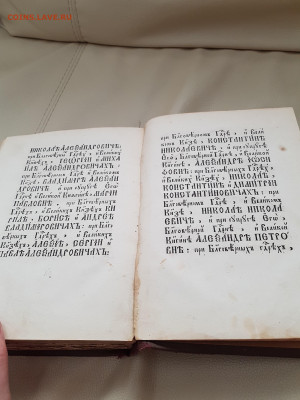 COINS.SU
НИКОЛАѢ АЛЕѮАНДРОВИЧѢ:
при Бл҃говѣрномъ Гд҃рѣ, и Великомъ
Кн҃зѣ, ГЕѠРГІИ и МИХА
ИЛѢ АЛЕѮАНДРОВИЧАХЪ:
Кн҃зѣ, ВЛАДИМІРѢ АЛЕѮАН
ДРОВИЧѢ и при сꙋпрꙋгѣ Єгѡ̀
МАРІИ
ПАВЛОВНѢ. при Бл҃говѣрныхъ
Гд҃рѣхъ, и Великихъ Кн҃зѣхъ, КИ
РИЛѢ, БОРИСѢ и АНДРЕѢ
ВЛАДИМІРОВИЧАХЪ: при Бл҃
говѣрныхъ Гд҃рѣхъ, и Великихъ
Кн҃зѣхъ, АЛЕѮІѢ, СЕРГІИ и
ПАВЛѢ АЛЕѮАНДРОВИЧАХЪ:
при Бл҃говѣрномъ Гд҃рѣ, и Вели
комъ Кн҃зѣ, КОНСТАНТИНѢ
НИКОЛАЕВИЧѢ, и при сꙋпрꙋгѣ
Єгѡ̀, АЛЕѮАНДРѢ ІѠСИ
ФОВНѢ: при Бл҃говѣрныхъ Гд҃рѣхъ
и Великихъ Кн҃зѣхъ, НИКОЛАѢ,
КОНСТАНТИНѢ и ДИМИТРІИ
КОНСТАНТИНОВИЧАХЪ: при
Бл҃говѣрномъ Гд҃рѣ, и Великомъ
Кн҃зѣ, НИКОЛАѢ НИКОЛА
ЕВИЧѢ, и при сꙋпрꙋгѣ Єгѡ̀,
Бл҃говѣрной Гд҃рынѣ, и Великой
Кн҃гинѣ АЛЕѮАНДРѢ ПЕТРО
ВНѢ: при Бл҃говѣрныхъ Гд҃рѣхъ,